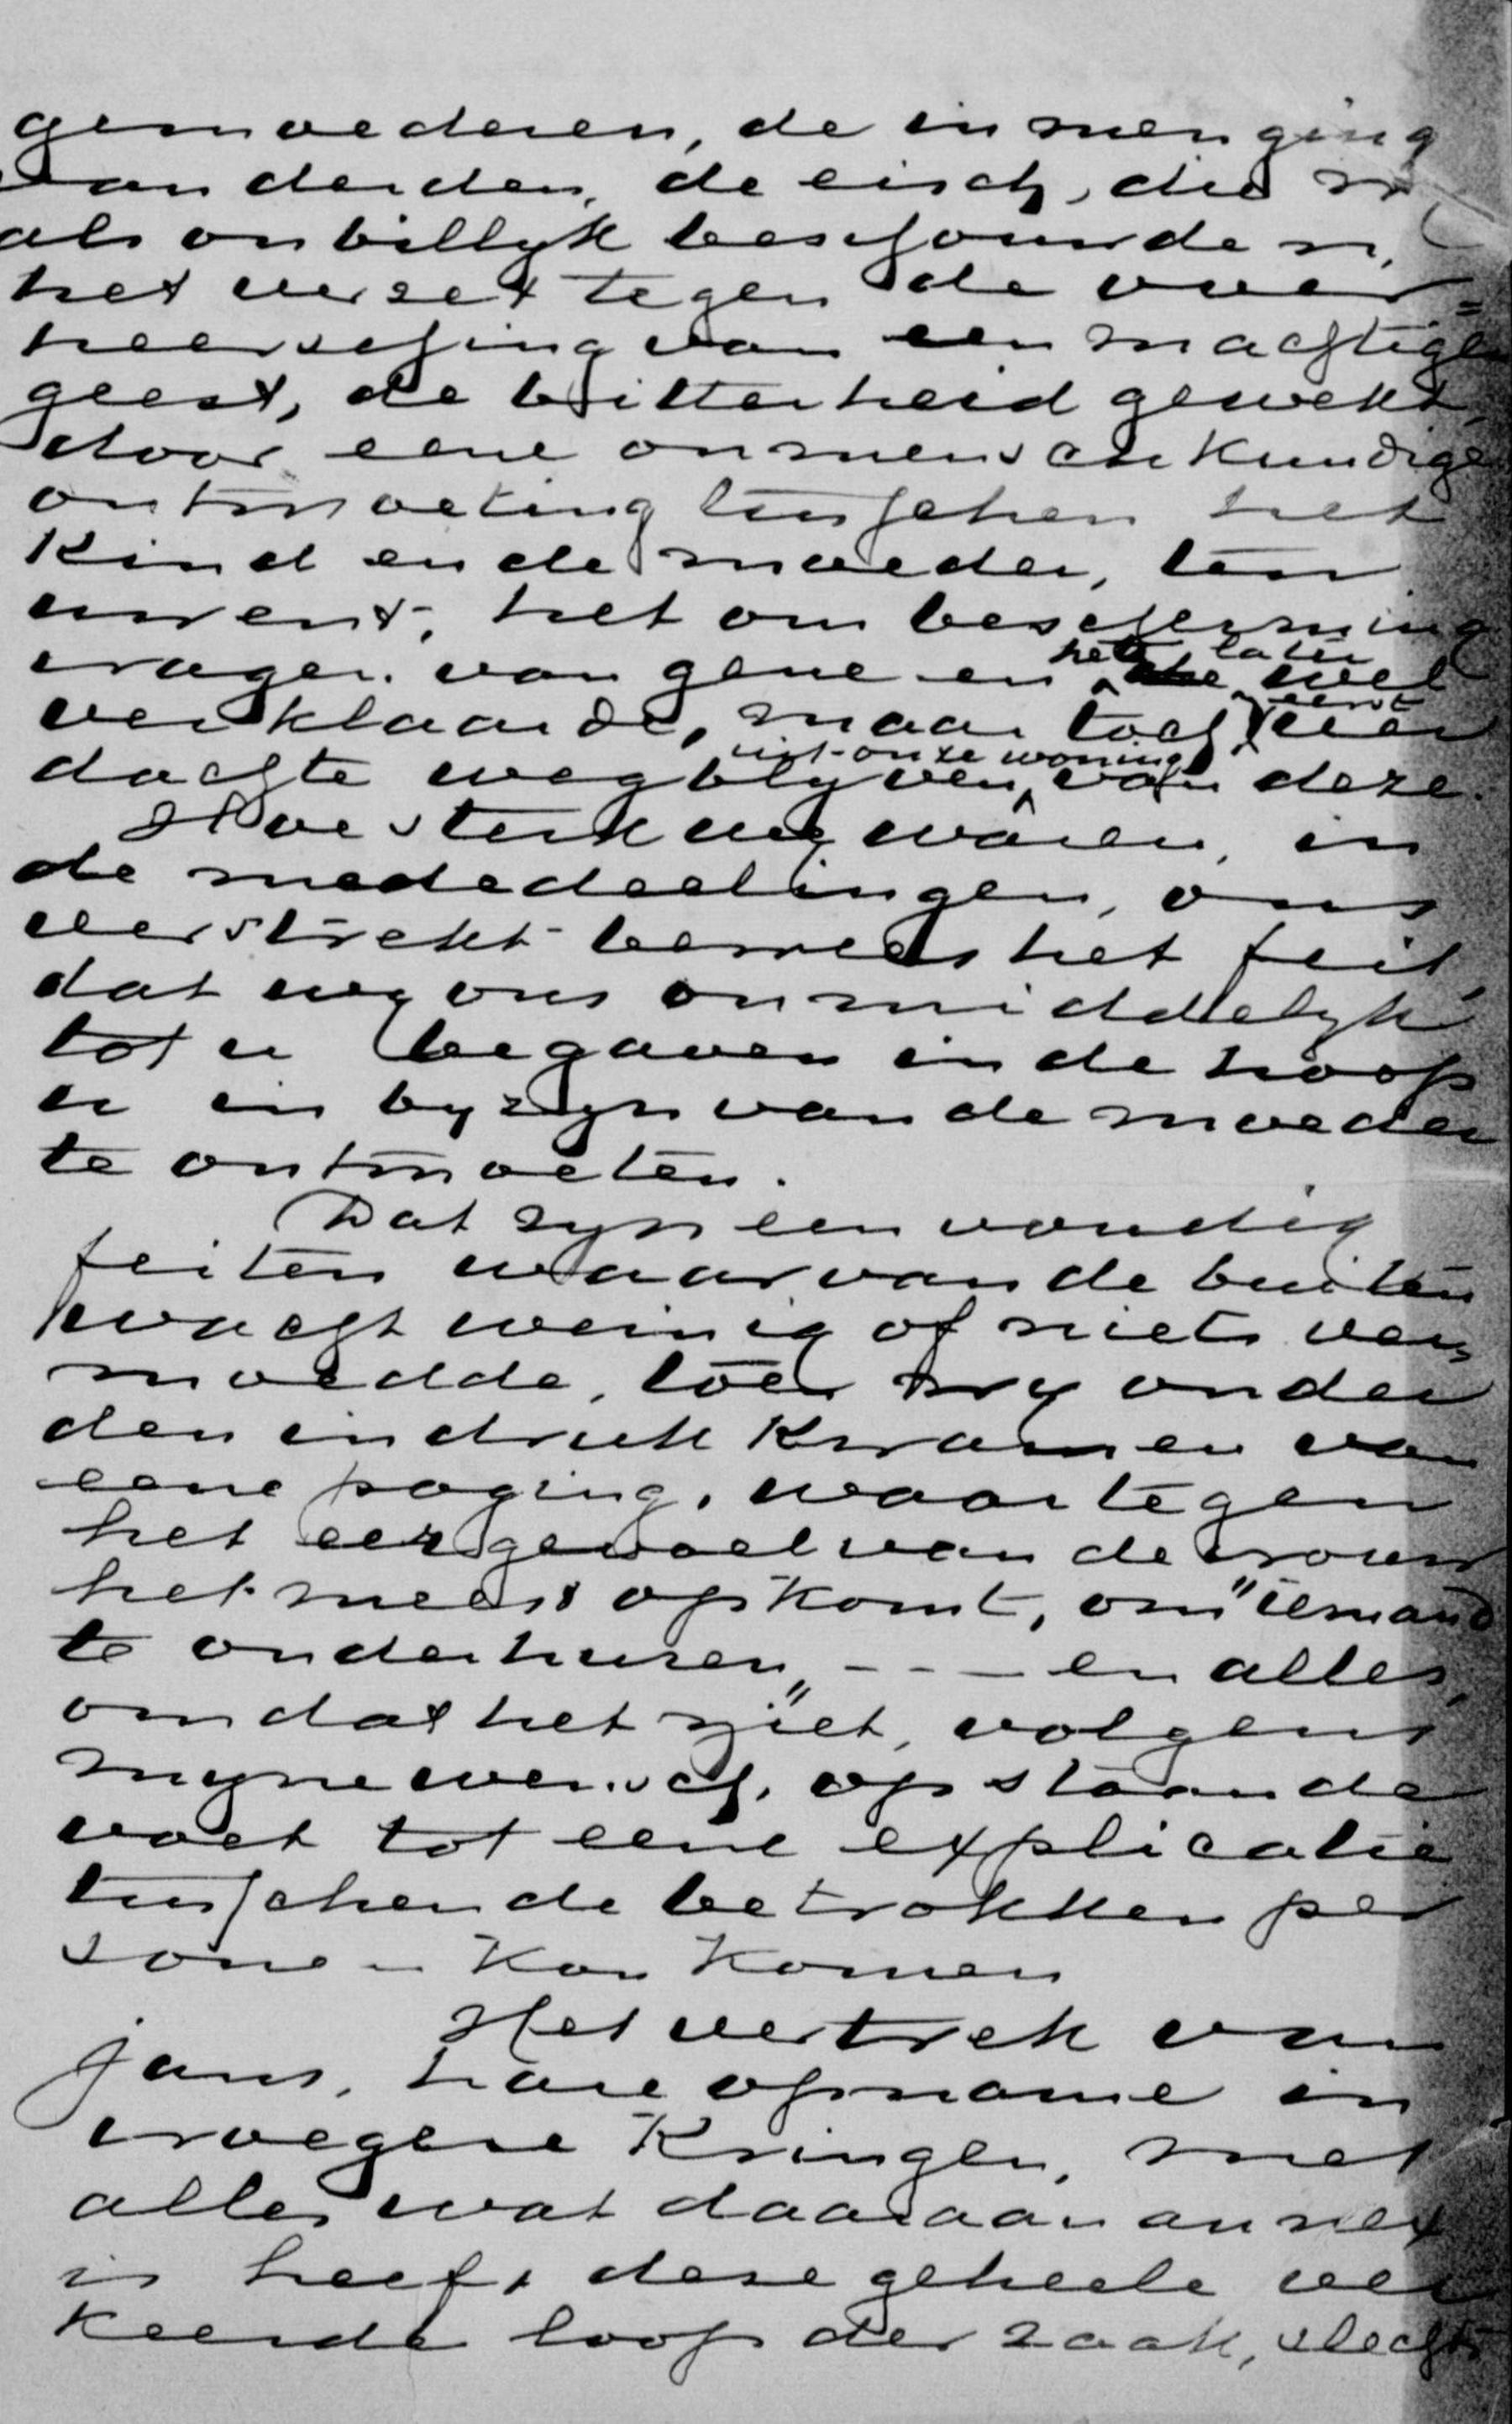 gemoederen, de inmenging
van derden, de eisch, die
als onbillyk beschouwden,
het verzet tegen de over=
heersching van een machtigen
geest, de bitterheid gewekt,
door eene onmenschkundige
ontmoeting tusschen het
Kind en de moeder, ten
onrent; het om bescherming
vragen van gene en het later wel
verklaarde, maar toch eerst ver
dachte wegblyven uit onze woning van deze.
Hoe sterk wy waren, in
de mededeelingen, ons
verstrekt bewees het feit,
dat wy ons onmiddellyk
tot u begaven in de hoop
u in byzyn van de moeder
te ontmoeten.
Dat zyn eenvoudig
feiten waarvan de buiten
wacht weinig of niets ver
moedde, toen wy onder
den indruk Kwamen van
eene poging, waartegen
het eergevoel van de vrouw
het meest opkomt, om "iemand
te onderhuren" --- en alles,
omdat het niet, volgens
myne wensch, op staande
voet tot eene explicatie
tusschen de betrokken per
sonen Kon Komen
Het vertrek van
Jans, hare opname in
vroegere Kringen, met
alles wat daaraan annex
is heeft deze geheele ver
keerde loop der zaak, slechts